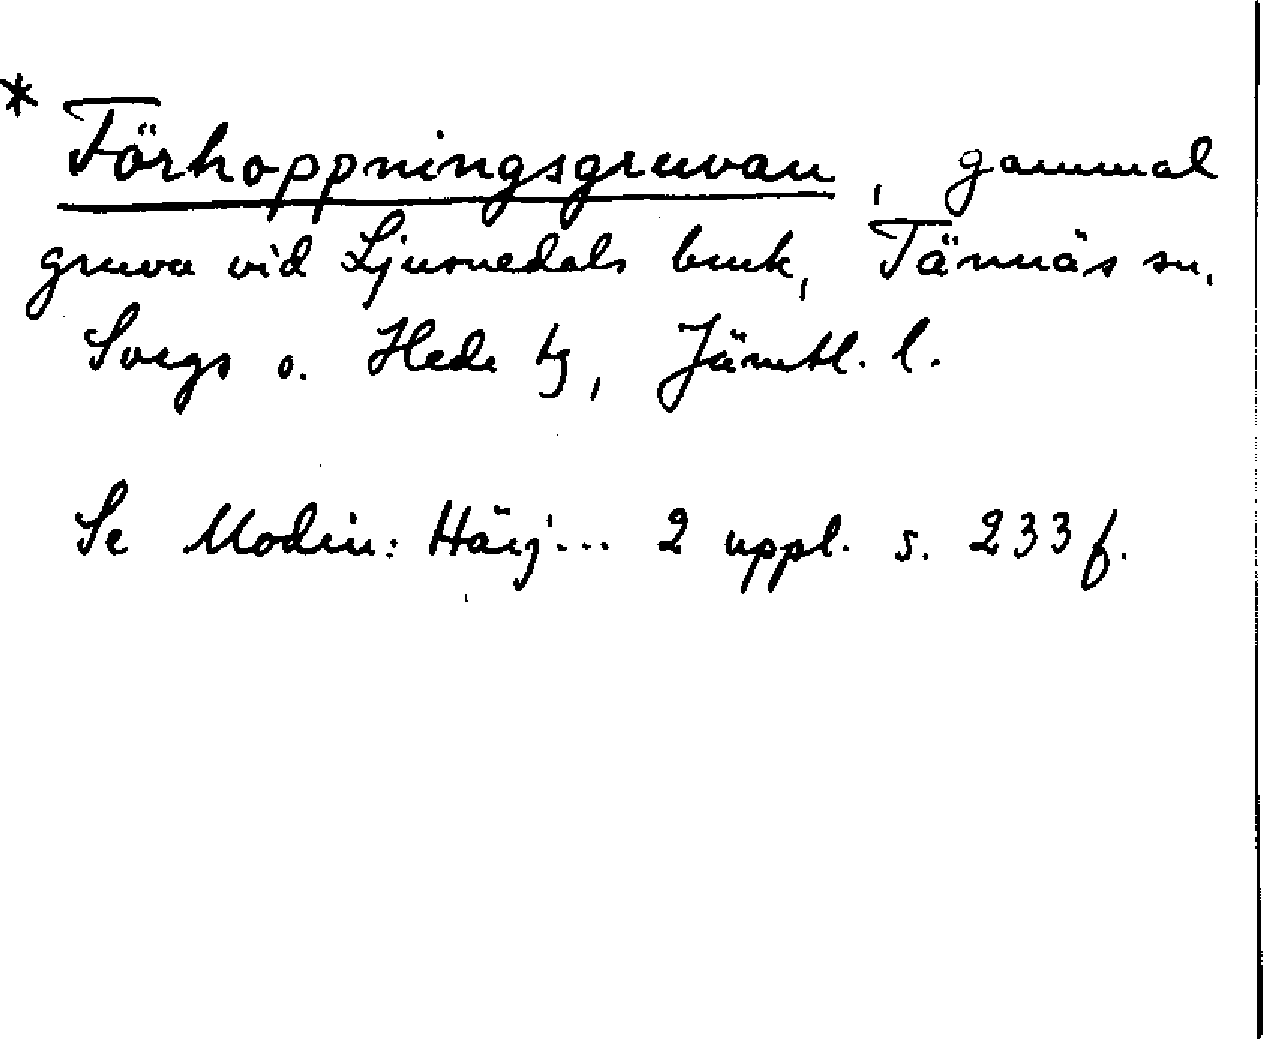 * Förhoppningsgruvan, gammal
gruva vid Ljusnedals bruk, Tännäs sn,
Svegs o. Hede tg, Jämtl. l.
Se Modin: Härj... 2 uppl. s. 233 f.